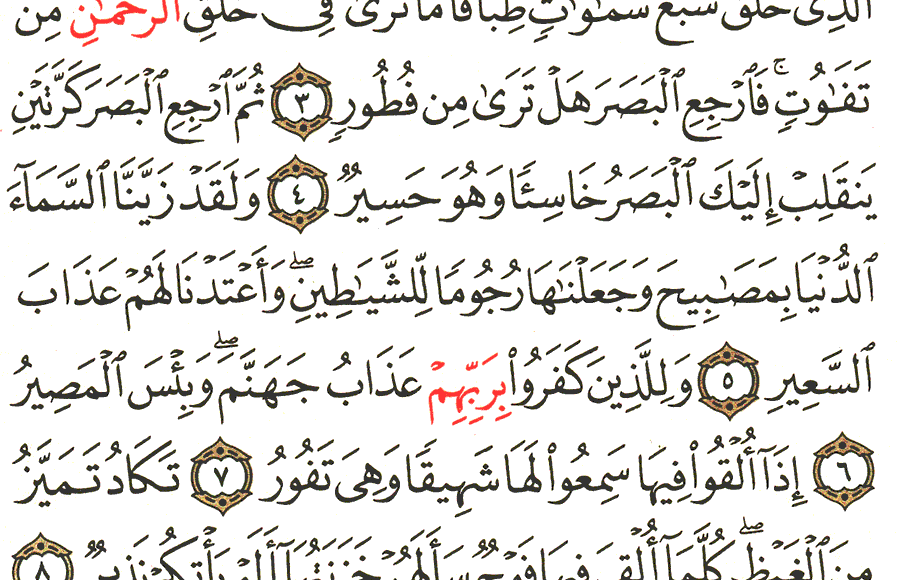 ٱلَّذِى خَلَقَ سَبْعَ سَمَٰوَٰتٍ طِبَاقًا مَّا تَرَىٰ فِى خَلْقِ ٱلرَّحْمَٰنِ مِن
تَفَٰوُتٍ ۖ فَٱرْجِعِ ٱلْبَصَرَ هَلْ تَرَىٰ مِن فُطُورٍ ٣ ثُمَّ ٱرْجِعِ ٱلْبَصَرَ كَرَّتَيْنِ
يَنقَلِبْ إِلَيْكَ ٱلْبَصَرُ خَاسِئًا وَهُوَ حَسِيرٌ ٤ وَلَقَدْ زَيَّنَّا ٱلسَّمَآءَ
ٱلدُّنْيَا بِمَصَٰبِيحَ وَجَعَلْنَٰهَا رُجُومًا لِّلشَّيَٰطِينِ ۖ وَأَعْتَدْنَا لَهُمْ عَذَابَ
ٱلسَّعِيرِ ٥ وَلِلَّذِينَ كَفَرُوا۟ بِرَبِّهِمْ عَذَابُ جَهَنَّمَ ۖ وَبِئْسَ ٱلْمَصِيرُ
٦ إِذَآ أُلْقُوا۟ فِيهَا سَمِعُوا۟ لَهَا شَهِيقًا وَهِىَ تَفُورُ ٧ تَكَادُ تَمَيَّزُ
مِنَ ٱلْغَيْظِ ۖ كُلَّمَآ أُلْقِىَ فِيهَا فَوْجٌ سَأَلَهُمْ خَزَنَتُهَآ أَلَمْ يَأْتِكُمْ نَذِيرٌ ٨